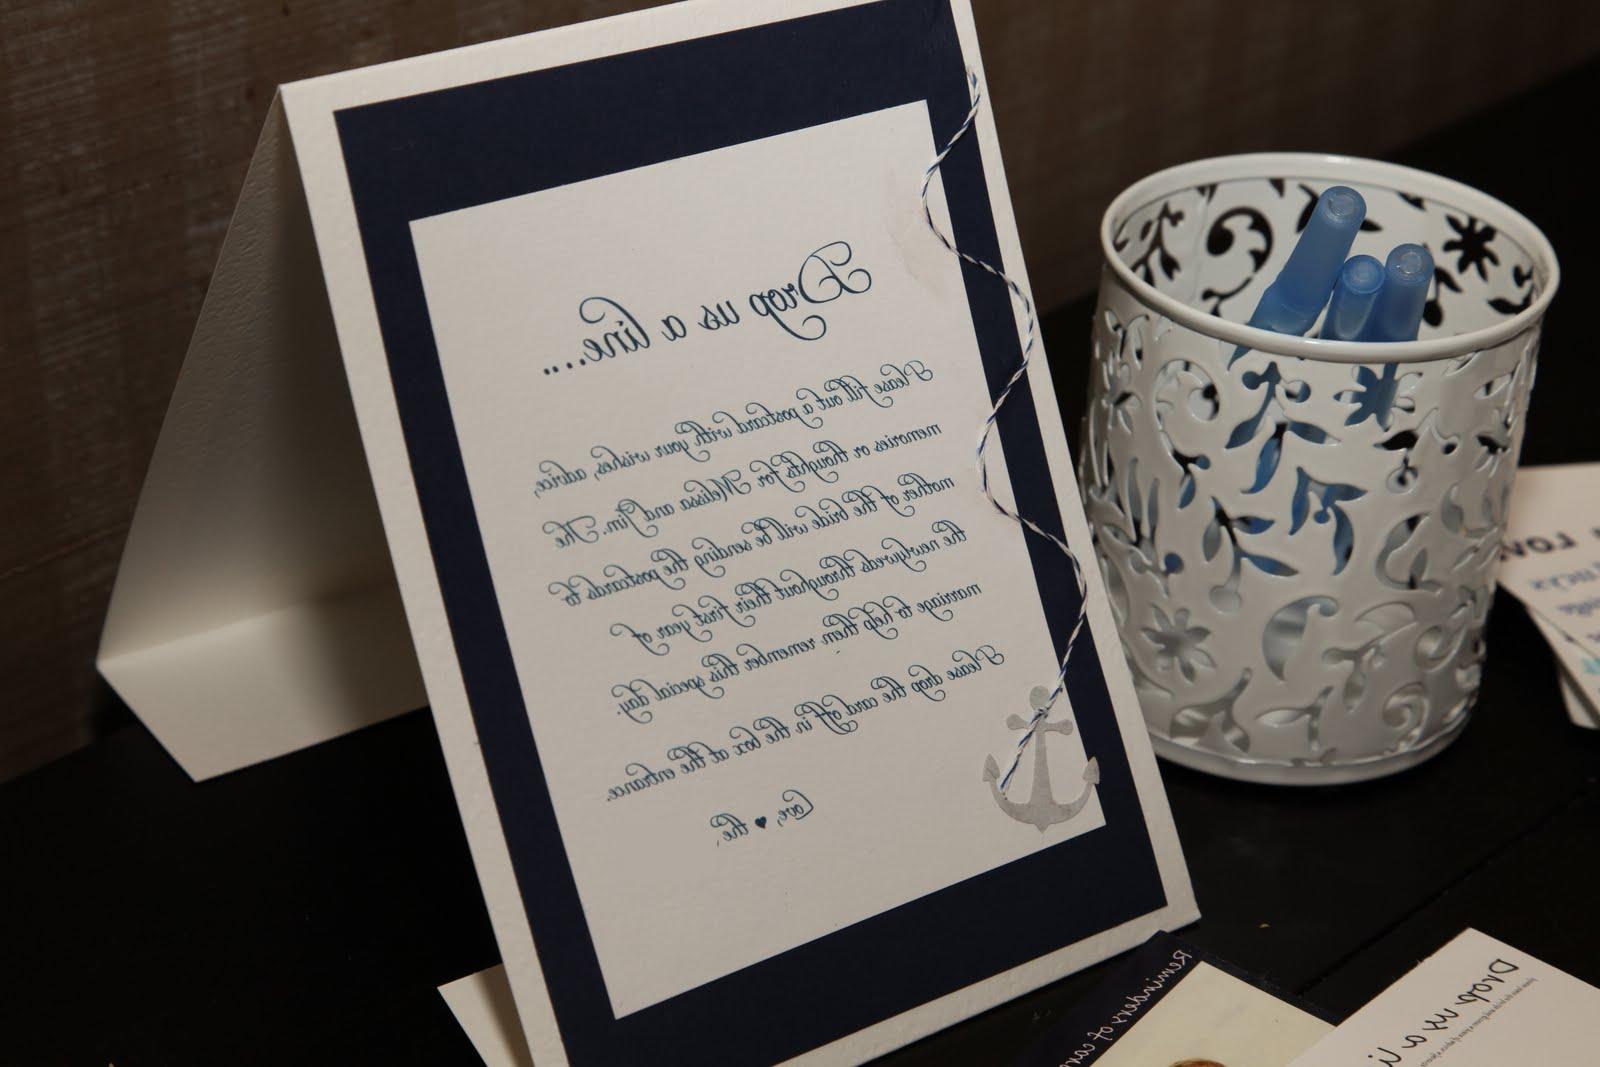 Drop us a line....
Please fill out a postcard with your wishes, advice,
memories or thoughts for Melissa and Jim. The
mother of the bride will be sending the postcards to
the newlyweds throughout their first year of
marriage to help them remember this special day.
Please drop the card off in the box at the entrance.
Love, ♥ the,
Reminders of
Drop us a li